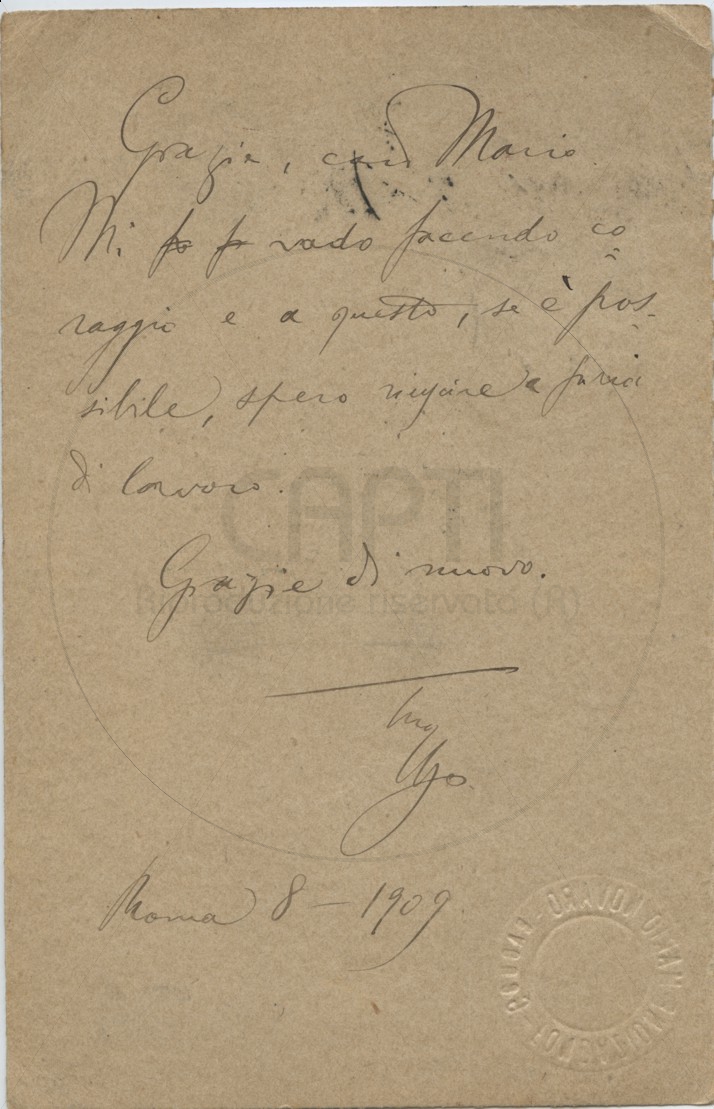 Grazie, caro Mario.
Mi fo fo vado facendo co
raggio e a questo, se è pos-
sibile, spero riuscire a furia
di lavoro.
Grazie di nuovo.
tuo
Ugo
Roma 8 - 1909
CAPTI
Riproduzione riservata (R)